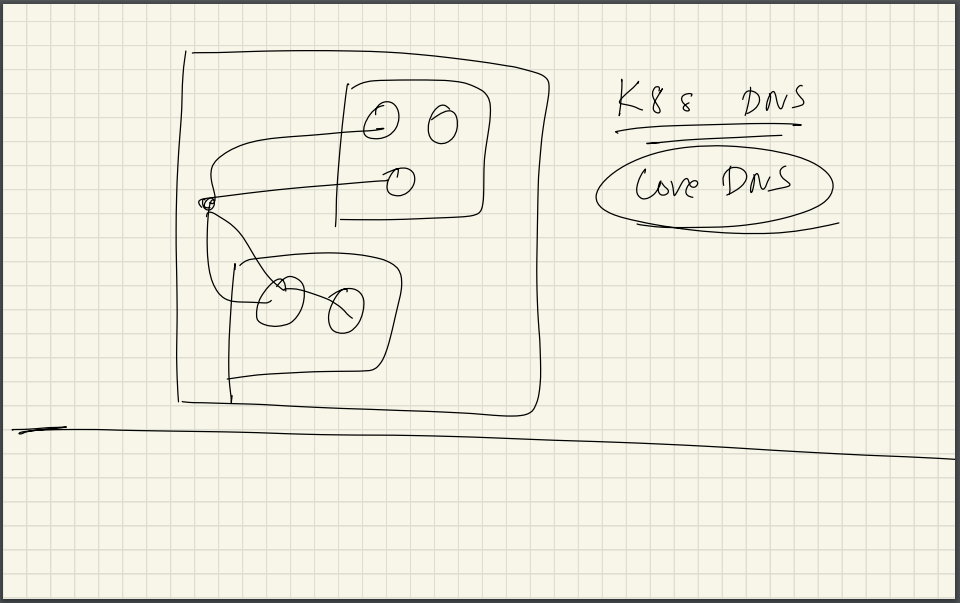 K8s DNS
Core DNS